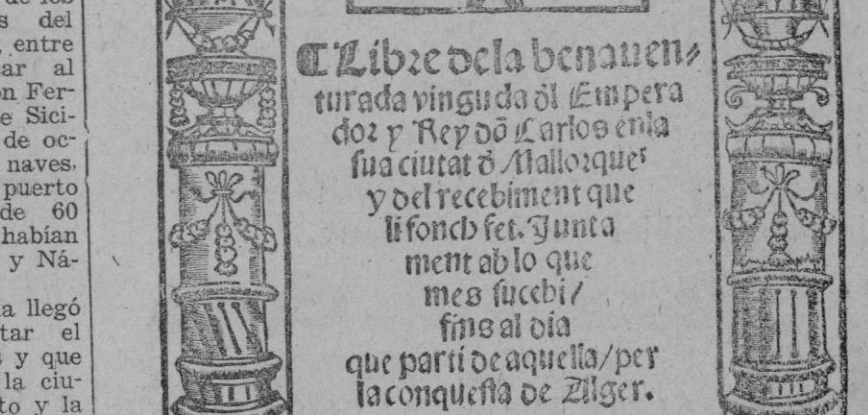 de los
s del
, entre
ar al
on Fer-
e Sici-
de oc-
naves.
puerto
de 60
habían
y Ná-
a llegó
tar el
s y que
la ciu-
to y la
¶ Libre de la benauen-
turada vinguda dl Empera
dor y Rey dõ Carlos en la
sua ciutat d Mallorques
y del recebiment que
li fonch fet. Junta
ment ab lo que
mes succebi/
fins al dia
que parti de aquella/per
la conquesta de Alger.